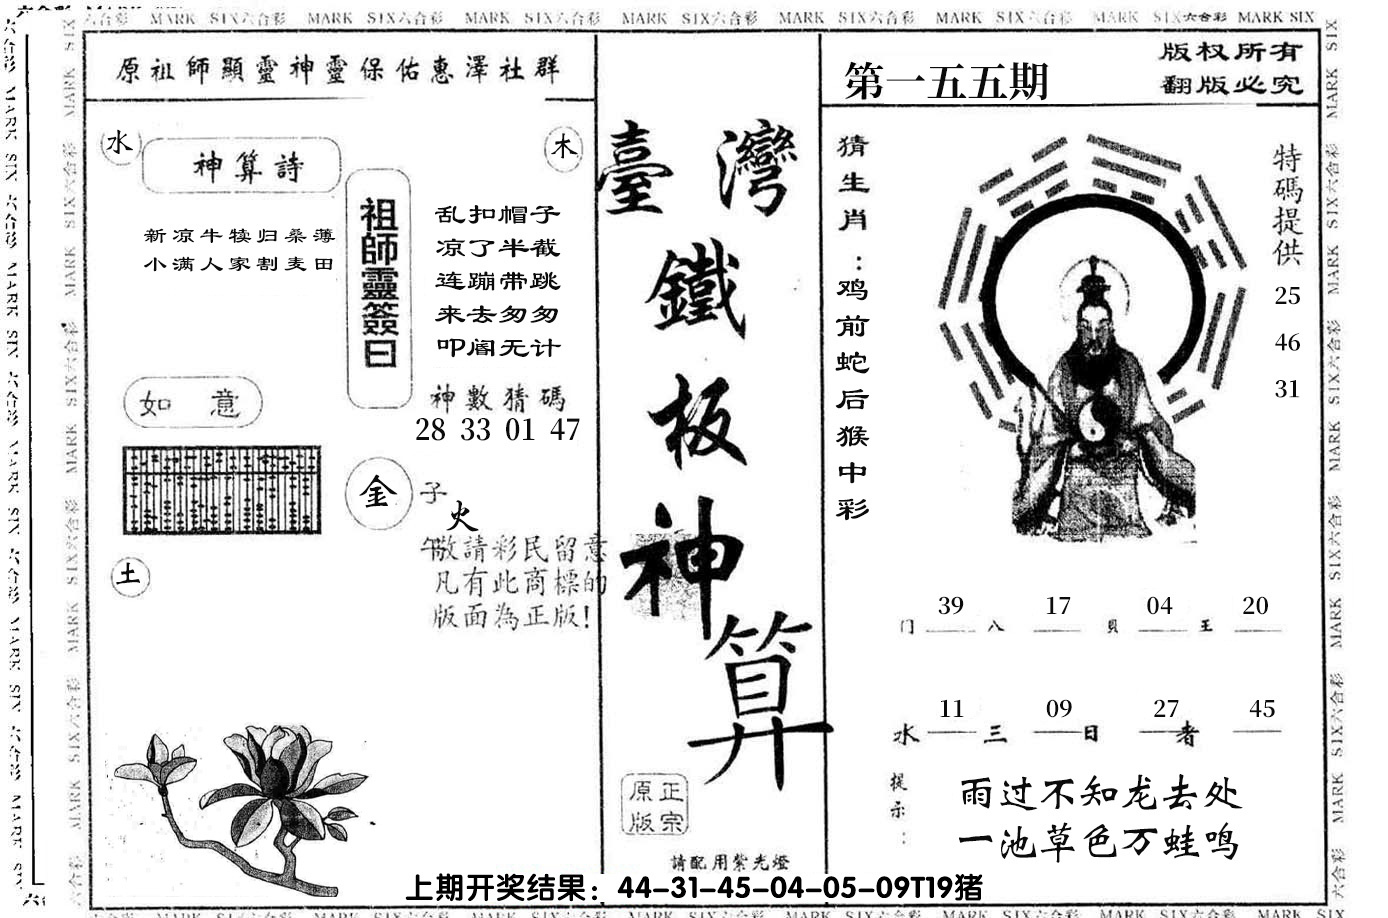 六合彩 MARK SIX六合彩 MARK SIX六合彩 MARK SIX六合彩 MARK SIX六合彩 MARK SIX六合彩 MARK SIX六合彩 MARK SIX六合彩 MARK SIX
原祖師顯靈神靈保佑惠澤社群
水
神算詩
木
新凉牛犊归桑薄
小满人家割麦田
祖師靈簽曰
乱扣帽子
凉了半截
连蹦带跳
来去匆匆
叩阍无计
如 意
神數猜碼
28 33 01 47
金
子
火
午
敬請彩民留意
凡有此商標的
版面為正版!
土
臺灣
鐵
板
神
算
正宗
原版
請配用紫光燈
第一五五期
版权所有
翻版必究
猜生肖：鸡前蛇后猴中彩
特碼提供
25
46
31
门 39 八 17 貝 04 王 20
水 11 三 09 日 27 者 45
提示：
雨过不知龙去处
一池草色万蛙鸣
上期开奖结果：44-31-45-04-05-09T19猪